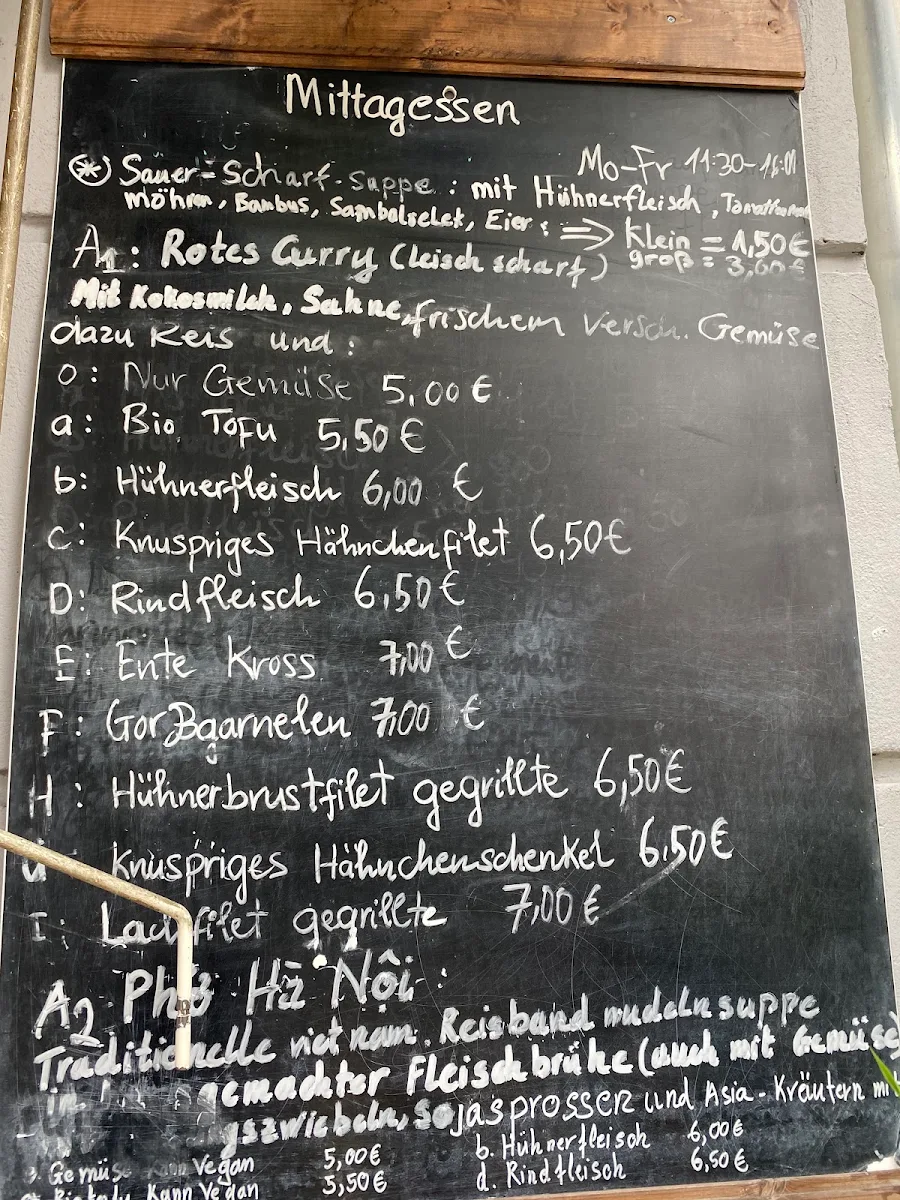 Mittagessen
Mo-Fr 11:30-16:00
* Sauer-Scharf-Suppe: mit Hühnerfleisch,
möhren, Bambus, Eier: => Klein = 1,50€
groß = 3,60€
A1: Rotes Curry (leisch scharf)
Mit Kokosmilch, Sahne, frischem Versch. Gemüse
dazu Reis und:
o: Nur Gemüse 5,00€
a: Bio Tofu 5,50€
b: Hühnerfleisch 6,00 €
c: Knuspriges Hähnchenfilet 6,50€
D: Rindfleisch 6,50€
E: Ente Kross 7,00 €
F: Gorßgarnelen 7,00 €
H: Hühnerbrustfilet gegrillte 6,50€
Knuspriges Hähnchenschenkel 6,50€
I: filet gegrillte 7,00€
A2 Phở Hà Nội:
Traditionelle vietnam. Reisband nudeln suppe
gemachter Fleischbrühe (auch mit Gemüse)
Sojasprossen und Asia-Kräutern mit
Gemüse Kann Vegan 5,00€
b. Hühnerfleisch 6,00€
Kann Vegan 5,50€
d. Rindfleisch 6,50€